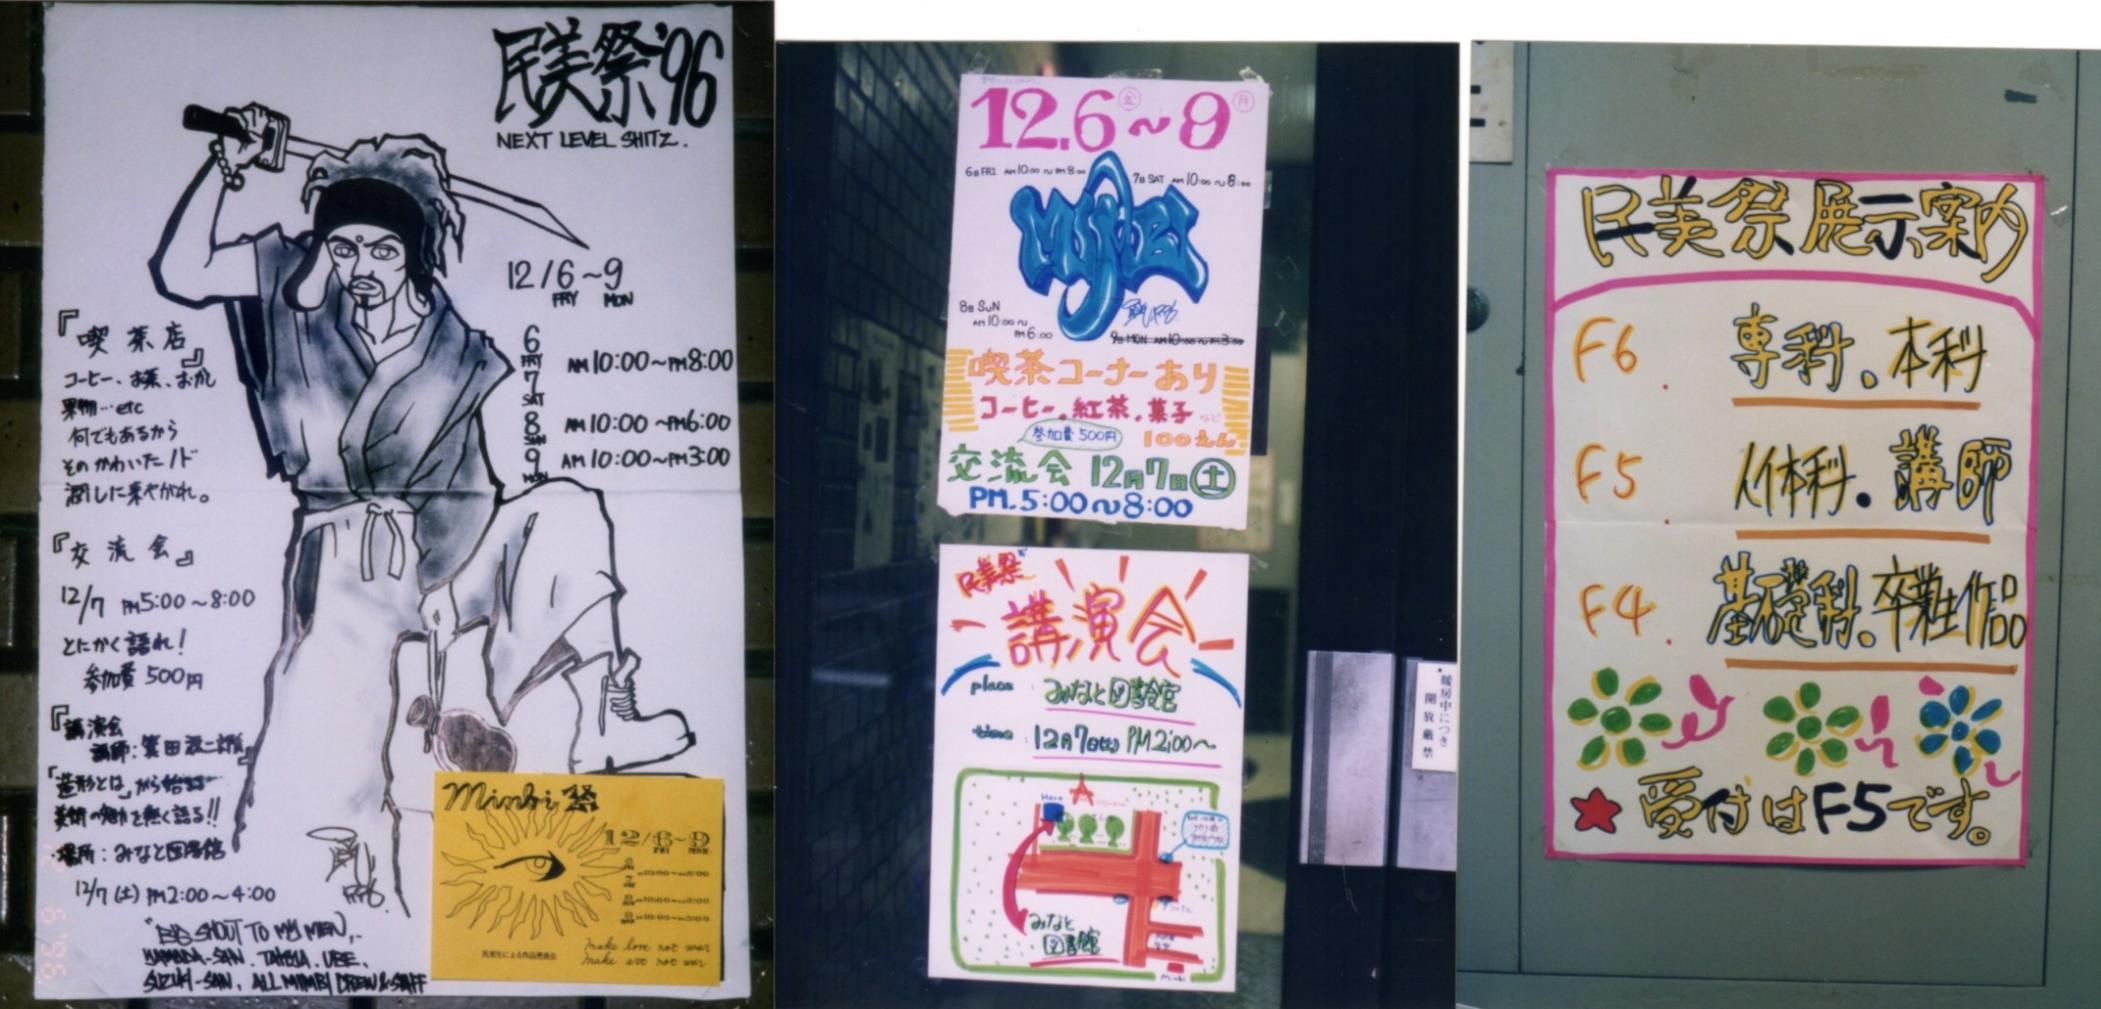 民美祭'96
NEXT LEVEL SHITZ.
12/6~9
FRY MON
6
FRY
7
SAT
AM10:00~PM8:00
8
SUN
AM10:00~PM6:00
9
MON
AM10:00~PM3:00
『喫茶店』
コーヒー、お茶、おかし
果物…etc
何でもあるから
そのかわいたノド
潤しに来やがれ。
『交流会』
12/7 PM5:00~8:00
とにかく語れ!
参加費500円
『講演会
講師:
「造形とは」から始まり
美術の魅力を熱く語る!!
場所:みなと図書館
12/7(土)PM2:00~4:00
"BIG SHOUT TO MY MEN,
YAMADA-SAN, TAKEYA, UBE,
SUZUKI-SAN, ALL MIMBI CREW & STAFF
Minbi祭
12/6~9
FRI MON
民美生による作品発表会
make love not war
make art not war
12.6(金)~9(月)
6日FRI AM10:00~PM8:00
7日SAT AM10:00~8:00
MIMBI
8日SUN
AM10:00~
PM6:00
9日MON AM10:00~PM3:00
喫茶コーナーあり
コーヒー、紅茶、菓子など
参加費500円
100えん
交流会 12月7日(土)
PM.5:00~8:00
民美祭
講演会
place みなと図書館
time 12月7日(土) PM2:00~
Here
みなと
図書館
Minbi
暖房中につき
開放厳禁
民美祭展示案内
F6. 専科、本科
F5. 人体科.講師
F4. 基礎科、卒業生作品
★受付はF5です。